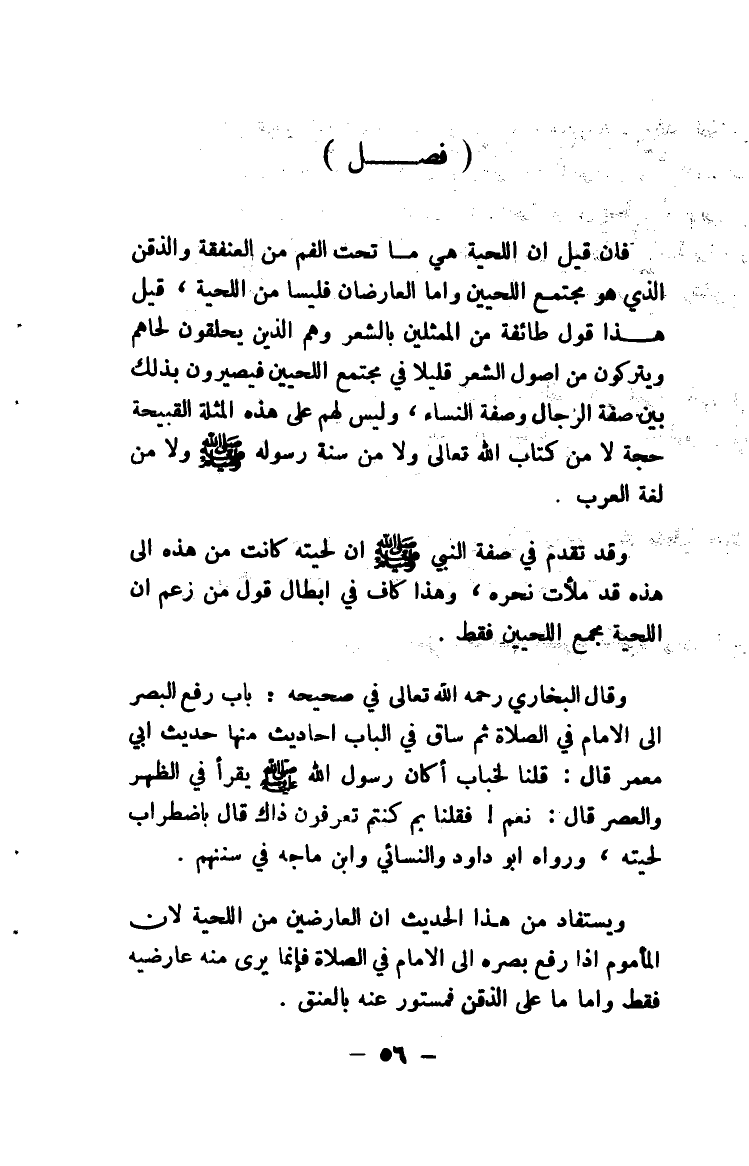 ( فصـــــل )
فان قيل ان اللحية هي مــا تحت الفم من العنفقة والذقن
الذي هو مجتمع اللحيين واما العارضان فليسا من اللحية ، قيل
هــــذا قول طائفة من الممثلين بالشعر وهم الذين يحلقون لحاهم
ويتركون من اصول الشعر قليلا في مجتمع اللحيين فيصيرون بذلك
بين صفة الرجال وصفة النساء ، وليس لهم على هذه المثلة القبيحة
حجة لا من كتاب الله تعالى ولا من سنة رسوله ﷺ ولا من
لغة العرب .
وقد تقدم في صفة النبي ﷺ ان لحيته كانت من هذه الى
هذه قد ملأت نحره ، وهذا كاف في ابطال قول من زعم ان
اللحية مجمع اللحيين فقط .
وقال البخاري رحمه الله تعالى في صحيحه : باب رفع البصر
الى الامام في الصلاة ثم ساق في الباب احاديث منها حديث ابي
معمر قال : قلنا لخباب أكان رسول الله ﷺ يقرأ في الظهر
والعصر قال : نعم ! فقلنا بم كنتم تعرفون ذاك قال باضطراب
لحيته ، ورواه ابو داود والنسائي وابن ماجه في سننهم .
ويستفاد من هــذا الحديث ان العارضين من اللحية لان
المأموم اذا رفع بصره الى الامام في الصلاة فإنما يرى منه عارضيه
فقط واما ما على الذقن فمستور عنه بالعنق .
– ٥٦ –